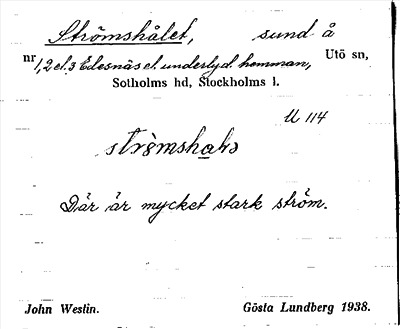 Strömshålet, sund å
nr 1, 2 el. 3 Edesnäs el. underlyd. hemman, Utö sn,
Sotholms hd, Stockholms l.
U 114
Där är mycket stark ström.
John Westin. Gösta Lundberg 1938.